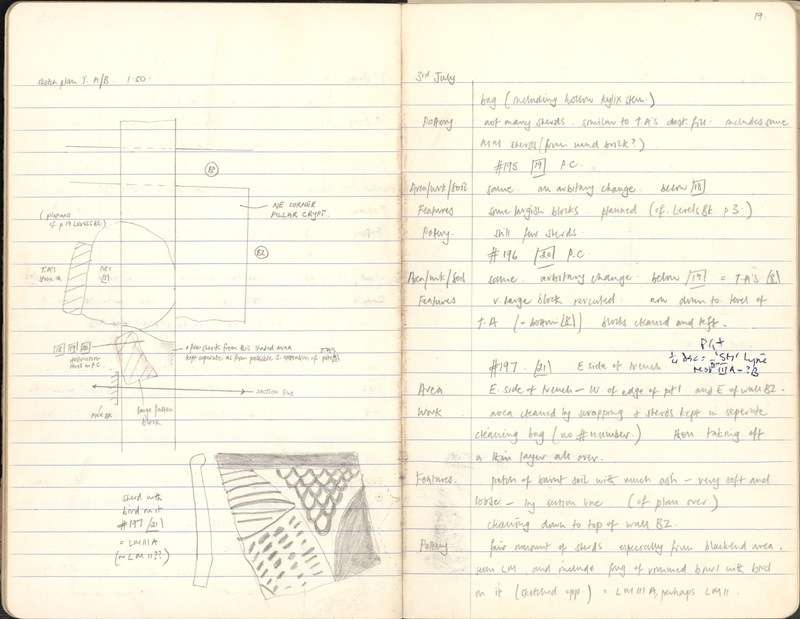 sketch plan T. A/B 1:50.
B8
NE CORNER
PILLAR CRYPT.
(planned
of p.19 Levels Bk.)
BZ
T.A's
Pit 1
18 19 20
destruction
a few sherds from this shaded area
kept separate as from possible
section line
large fallen
block
sherd with
bird on it
#197 /21/
= LM III A
(or LM II ??)
19.
3rd July
bag (including hollow kylix stem.)
Pottery not many sherds. similar to T.A's dest. fill. includes some
sherds (from mud brick?)
#195 19 P.C.
Area/wk/Soil same. an arbitary change. below 18
Features some largish blocks planned (cf. Levels Bk. p 3.)
Pottery. still few sherds.
#196 20 P.C.
Area/wk/Soil same. arbitrary change below 19 = T.A's /8/
Features v. large block revealed. now down to level of
T.A (= bottom /8/) blocks cleaned and left.
#197 /21/ E side of trench
Area E. side of trench - W of edge of pit 1 and E of wall BZ.
Work area cleaned by scrapping & sherds kept in seperate
cleaning bag (no # number.) then taking off
a thin layer all over.
Features. patch of burnt soil with much ash - very soft and
loose - by section line (cf plan over.)
cleaning down to top of wall BZ.
Pottery fair amount of sherds especially from blackend area.
seem LM. and include frag of rimmed bowl with bird
on it (sketched opp.) = LM III A, perhaps LM II.